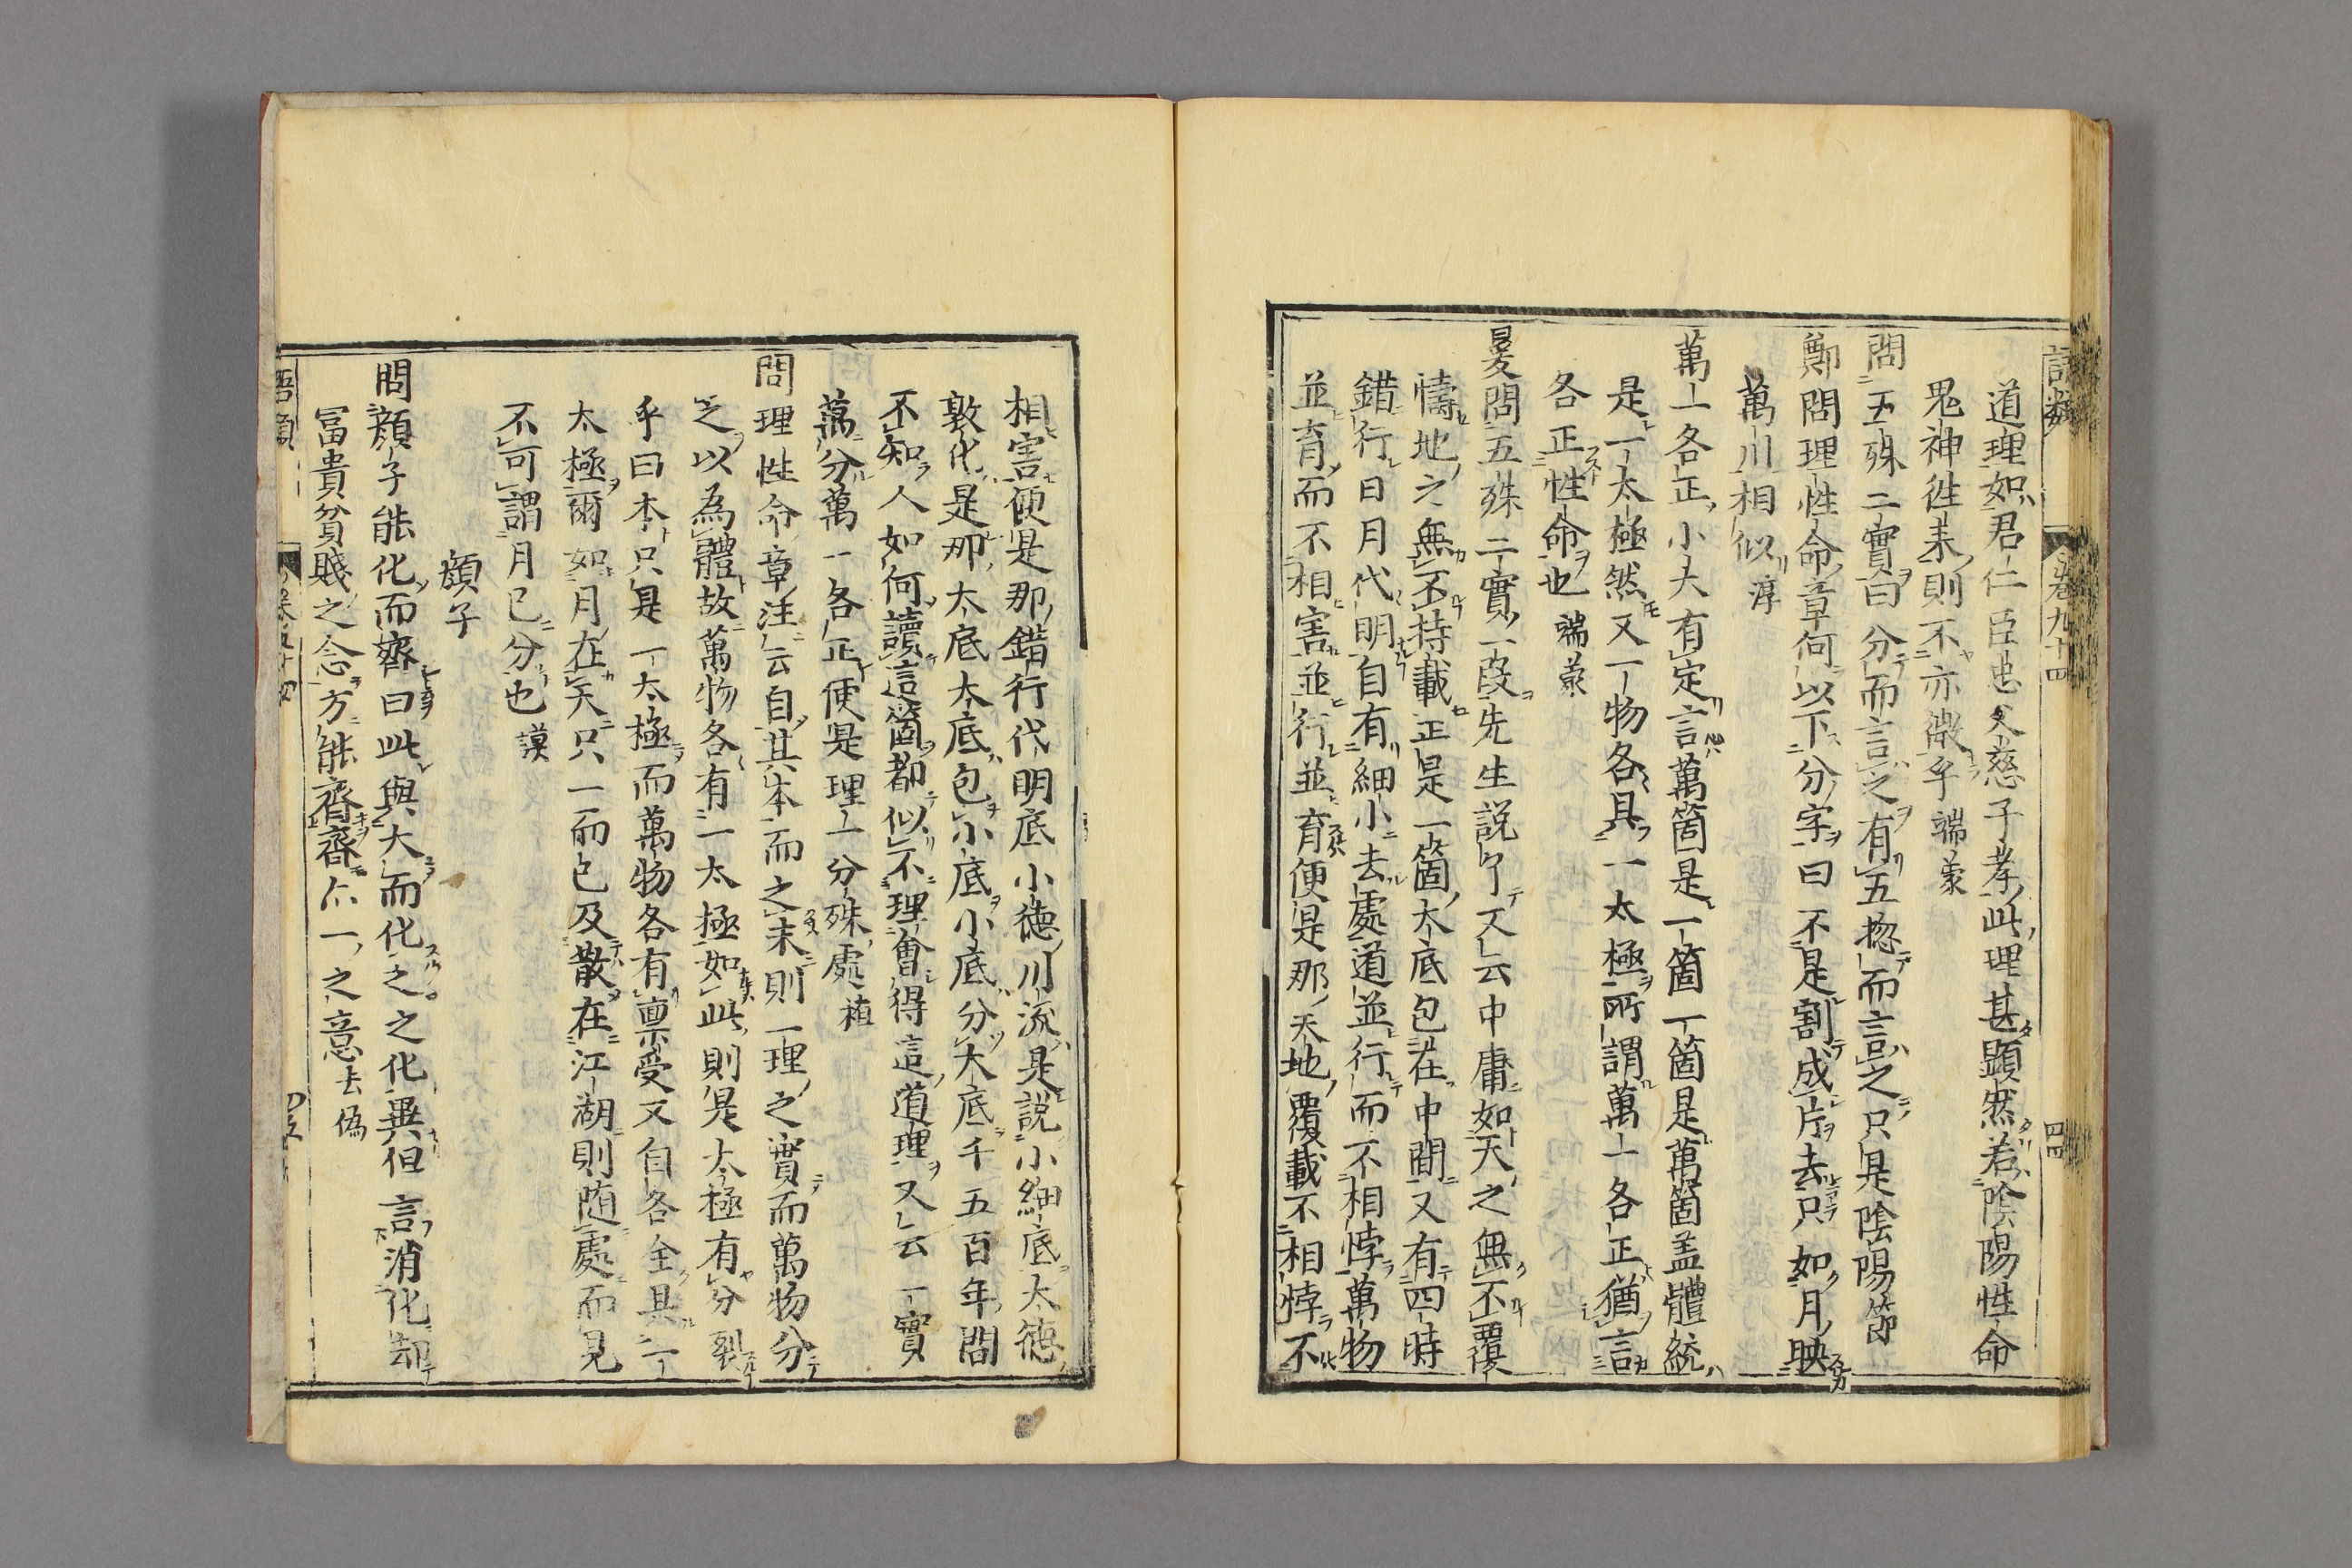 語類
卷九十四
四四
道理如君仁臣忠父慈子孝此理甚顯然若陰陽性命
鬼神徃来則不亦微乎 端蒙
問五殊二實曰分而言之有五捴而言之只是陰陽 節
鄭問理性命章何以下分字曰不是割成片去只如月映
萬川相似 淳
萬一各正小大有定言萬箇是一箇一箇是萬箇盖體統
是一太極然又一物各具一太極所謂萬一各正猶言
各正性命也 端蒙
㬊問五殊二實一段先生説了又云中庸如天之無不覆
幬地之無不持載正是一箇大底包在中間又有四時
錯行日月代明自有細小去處道並行而不相悖萬物
並育而不相害並行並育便是那天地覆載不相悖不
相害便是那錯行代明底小德川流是説小細底大德
敦化是那大底大底包小底小底分大底千五百年間
不知人如何讀這箇都似不理會得這道理又云一實
萬分萬一各正便是理一分殊處 植
問理性命章注云自其本而之末則一理之實而萬物分
之以為體故萬物各有一太極如此則是太極有分裂
乎曰本只是一太極而萬物各有稟受又自各全具一
太極爾如月在天只一而已及散在江湖則随處而見
不可謂月已分也 謨
顔子
問顔子能化而齊曰此與大而化之之化異但言消化却
冨貴貧賤之念方能齊齊亦一之意 去偽
語類
卷九十四
四五